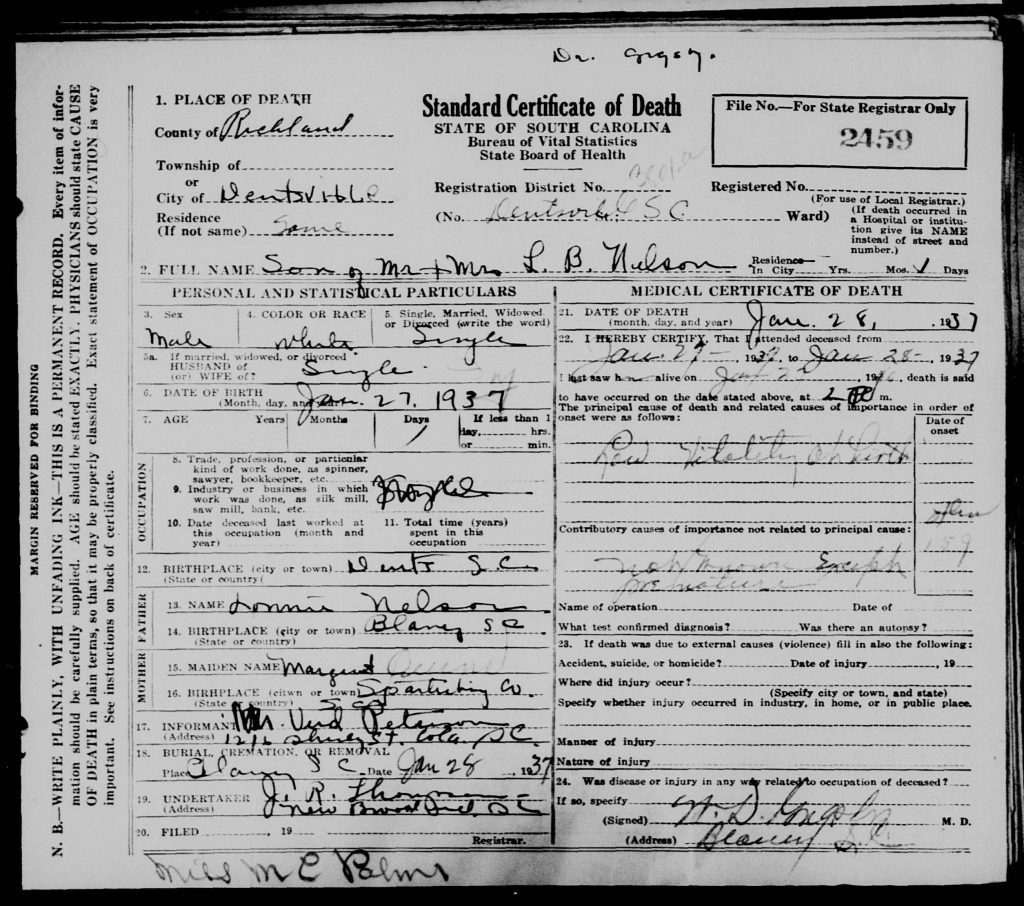 Dr.
MARGIN RESERVED FOR BINDING
N. B.—WRITE PLAINLY, WITH UNFADING INK—THIS IS A PERMANENT RECORD. Every item of infor-
mation should be carefully supplied. AGE should be stated EXACTLY. PHYSICIANS should state CAUSE
OF DEATH in plain terms, so that it may be properly classified. Exact statement of OCCUPATION is very
important. See instructions on back of certificate.
1. PLACE OF DEATH
County of Richland
Township of
or
City of Dentsville
Residence
(If not same) Same
Standard Certificate of Death
STATE OF SOUTH CAROLINA
Bureau of Vital Statistics
State Board of Health
Registration District No.
(No. Dentsville S C Ward)
File No.—For State Registrar Only
2459
Registered No.
(For use of Local Registrar.)
(If death occurred in
a Hospital or institu-
tion give its NAME
instead of street and
number.)
2. FULL NAME Son of Mr + Mrs L. B. Nelson Residence In City Yrs. Mos. 1 Days
PERSONAL AND STATISTICAL PARTICULARS
3. Sex 4. COLOR OR RACE 5. Single, Married, Widowed
or Divorced (write the word)
Male White Single
5a. If married, widowed, or divorced
HUSBAND of
(or) WIFE of? Single
6. DATE OF BIRTH
(Month, day, and year) Jan. 27, 1937
7. AGE Years Months Days If less than 1
1 day, hrs.
or min.
OCCUPATION
8. Trade, profession, or particular
kind of work done, as spinner,
sawyer, bookkeeper, etc.
9. Industry or business in which
work was done, as silk mill,
saw mill, bank, etc.
10. Date deceased last worked at
this occupation (month and
year)
11. Total time (years)
spent in this
occupation
12. BIRTHPLACE (city or town) Dents S. C.
(State or country)
FATHER
13. NAME Lonnie Nelson
14. BIRTHPLACE (city or town) Blaney S C
(State or country)
MOTHER
15. MAIDEN NAME Margaret
16. BIRHPLACE (citwn or town) Spartanburg Co.
(State or country) S C
17. INFORMANT Mr. Verd Peterson
(Address) St. Cola. S.C.
18. BURIAL, CREMATION, OR REMOVAL
Place Blaney S C Date Jan 28, 1937
19. UNDERTAKER J. R. Thompson
(Address) New Brookland, S C
20. FILED , 19
Registrar.
MEDICAL CERTIFICATE OF DEATH
21. DATE OF DEATH
(month, day, and year) Jan. 28, , 1937
22. I HEREBY CERTIFY, That I attended deceased from
Jan. 27 - 1937, to Jan 28 - , 1937
I last saw h alive on Jan 19 , death is said
to have occurred on the date stated above, at 2 P m.
The principal cause of death and related causes of importance in order of
onset were as follows:
Date of
onset
Low Vitality at birth
Contributory causes of importance not related to principal cause:
159
Not Known Except
premature
Name of operation Date of
What test confirmed diagnosis? Was there an autopsy?
23. If death was due to external causes (violence) fill in also the following:
Accident, suicide, or homicide? Date of injury , 19
Where did injury occur?
(Specify city or town, and state)
Specify whether injury occurred in industry, in home, or in public place.
Manner of injury
Nature of injury
24. Was disease or injury in any way related to occupation of deceased?
If so, specify
(Signed) W. D. M. D.
(Address) Blaney S. C.
Miss M C Palmer